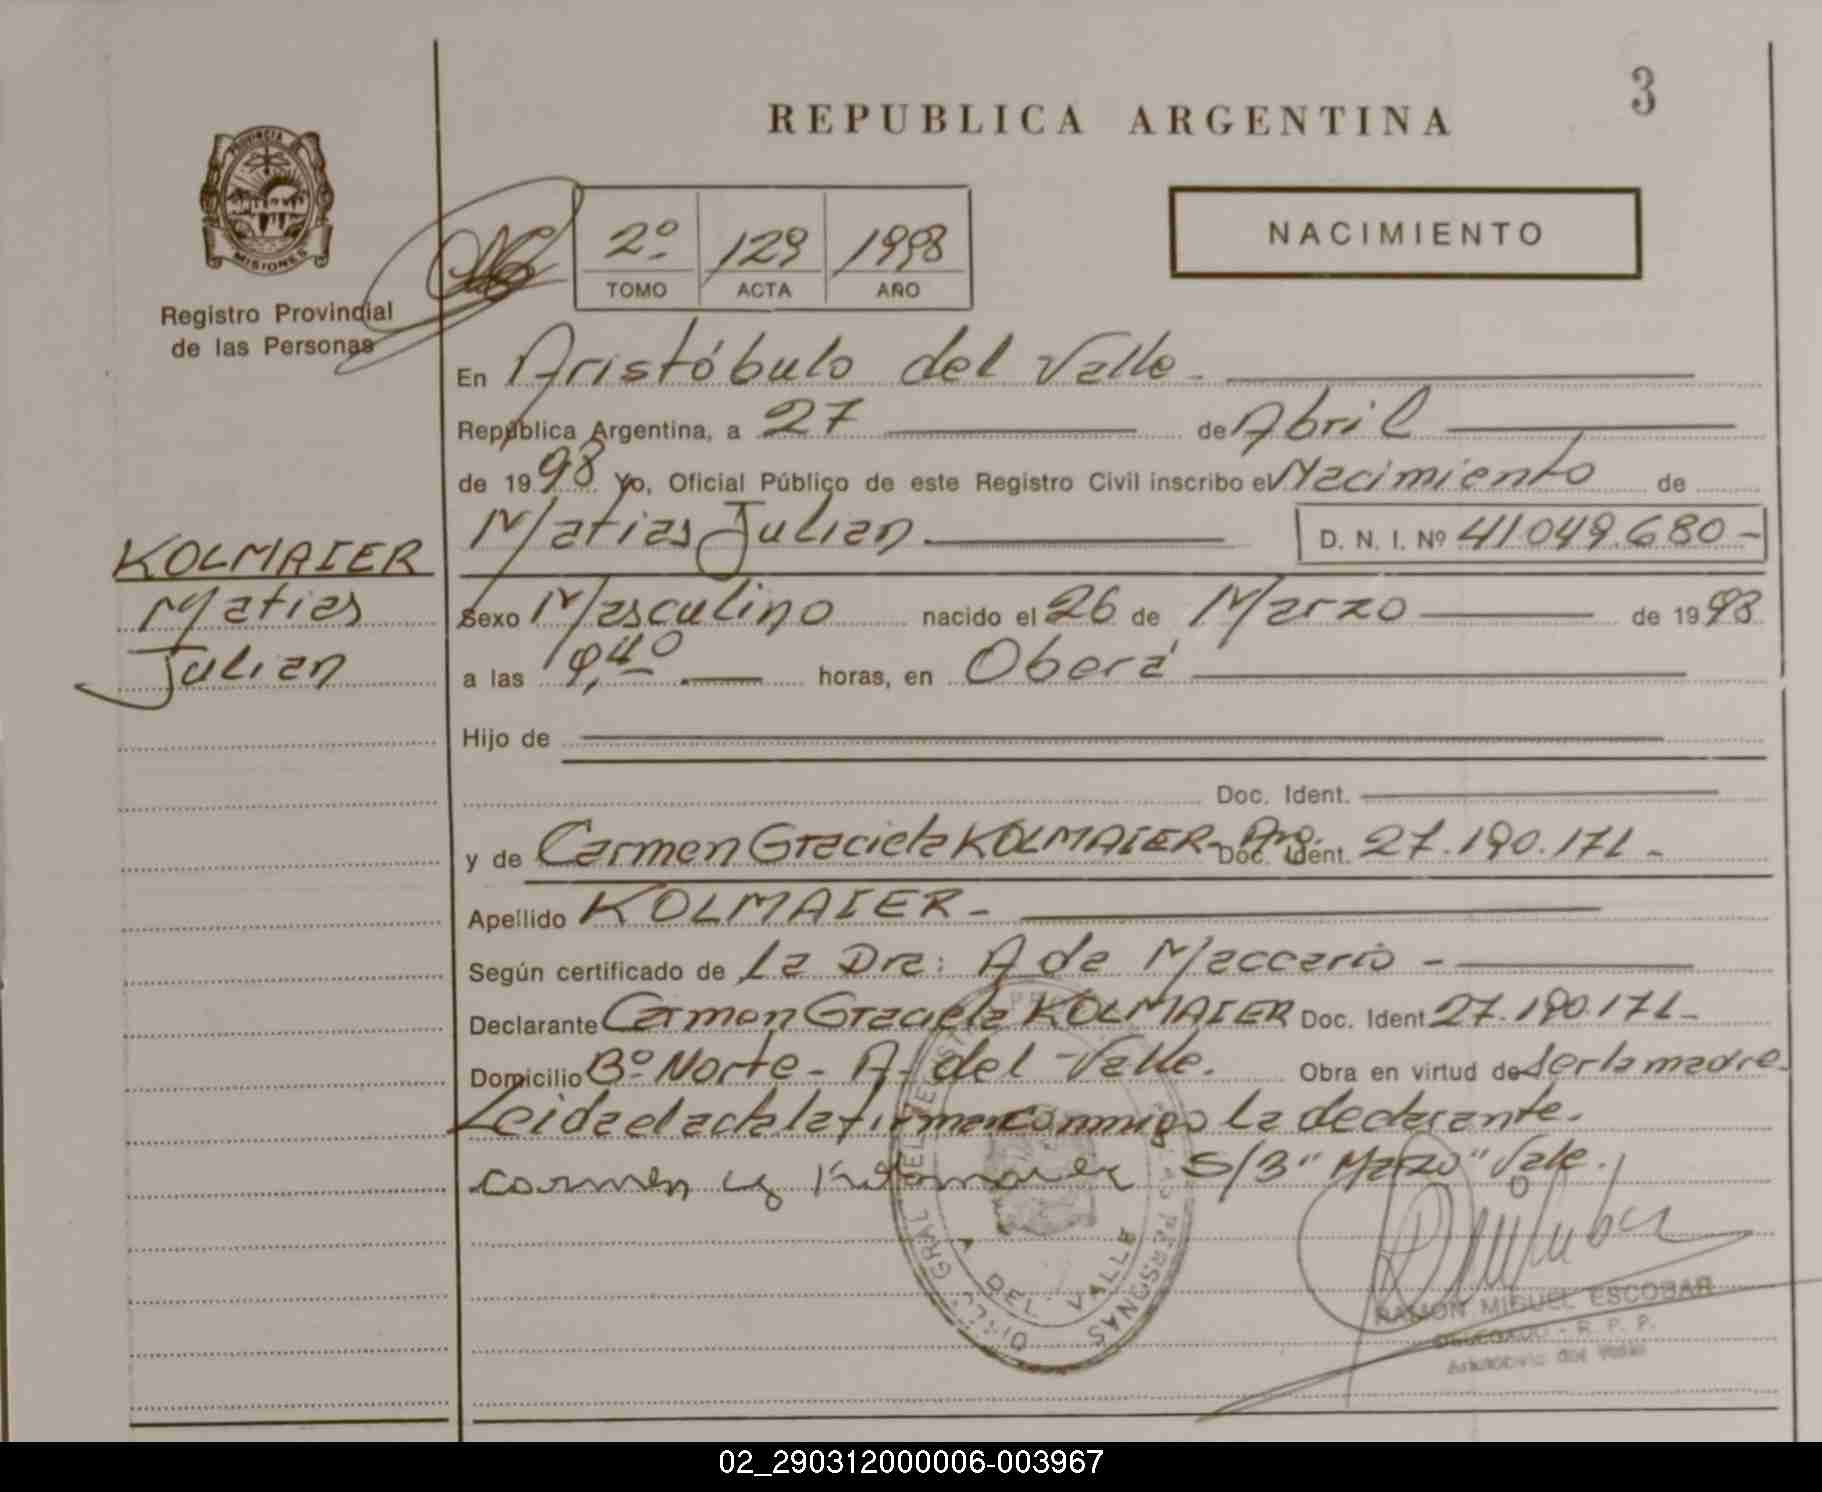 3
REPUBLICA ARGENTINA
PROVINCIA DE
MISIONES
Registro Provincial
de las Personas
2º 129 1998
TOMO ACTA AÑO
NACIMIENTO
En Aristóbulo del Valle.
República Argentina, a 27 de Abril
de 1998 Yo, Oficial Público de este Registro Civil inscribo el Nacimiento de
Matias Julian D. N. I. Nº 41.049.680-
KOLMAIER
Matias
Julian
Sexo Masculino nacido el 26 de Marzo de 1998
a las 9,40 horas, en Oberá
Hijo de
Doc. Ident.
y de Carmen Graciela KOLMAIER- Arg. Doc. Ident. 27.190.171-
Apellido KOLMAIER-
Según certificado de La Dra: Ada Maccario -
Declarante Carmen Graciela KOLMAIER Doc. Ident 27.190.171-
Domicilio Bº Norte- A. del Valle. Obra en virtud de ser la madre-
Leida el acta la firman conmigo la declarante.
Carmen G S/B "Marzo" Vale.
GRAL DEL REGISTRO PERSONAS
DEL VALLE
RAMON MIGUEL ESCOBAR
DELEGADO - R. P. P.
Aristobulo del Valle
02_290312000006-003967